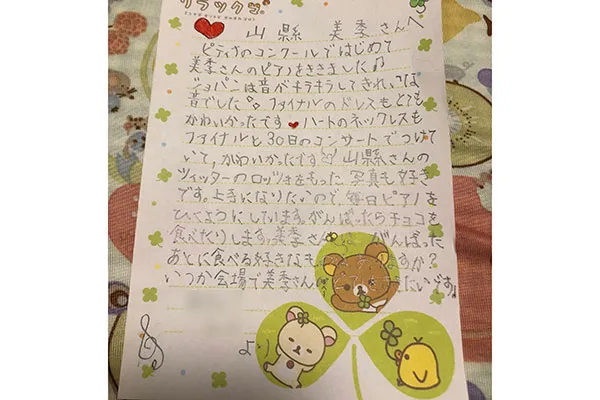 リラックマ
山縣 美季さんへ
ピティナのコンクールではじめて
美季さんのピアノをききました♪
ショパンは音がキラキラしてきれいな
音でした ファイナルのドレスもとても
かわいかったです♥ハートのネックレスも
ファイナルと30日のコンサートでつけて
いて、かわいかったです 山縣さんの
ツイッターのロッツォをもった写真も好き
です。上手になりたいので、毎日ピアノを
ひくようにしています。がんばったらチョコを
食べたりします。美季さんは がんばった
あとに食べる好きなも すか?
いつか会場で美季さん たいです♪
より